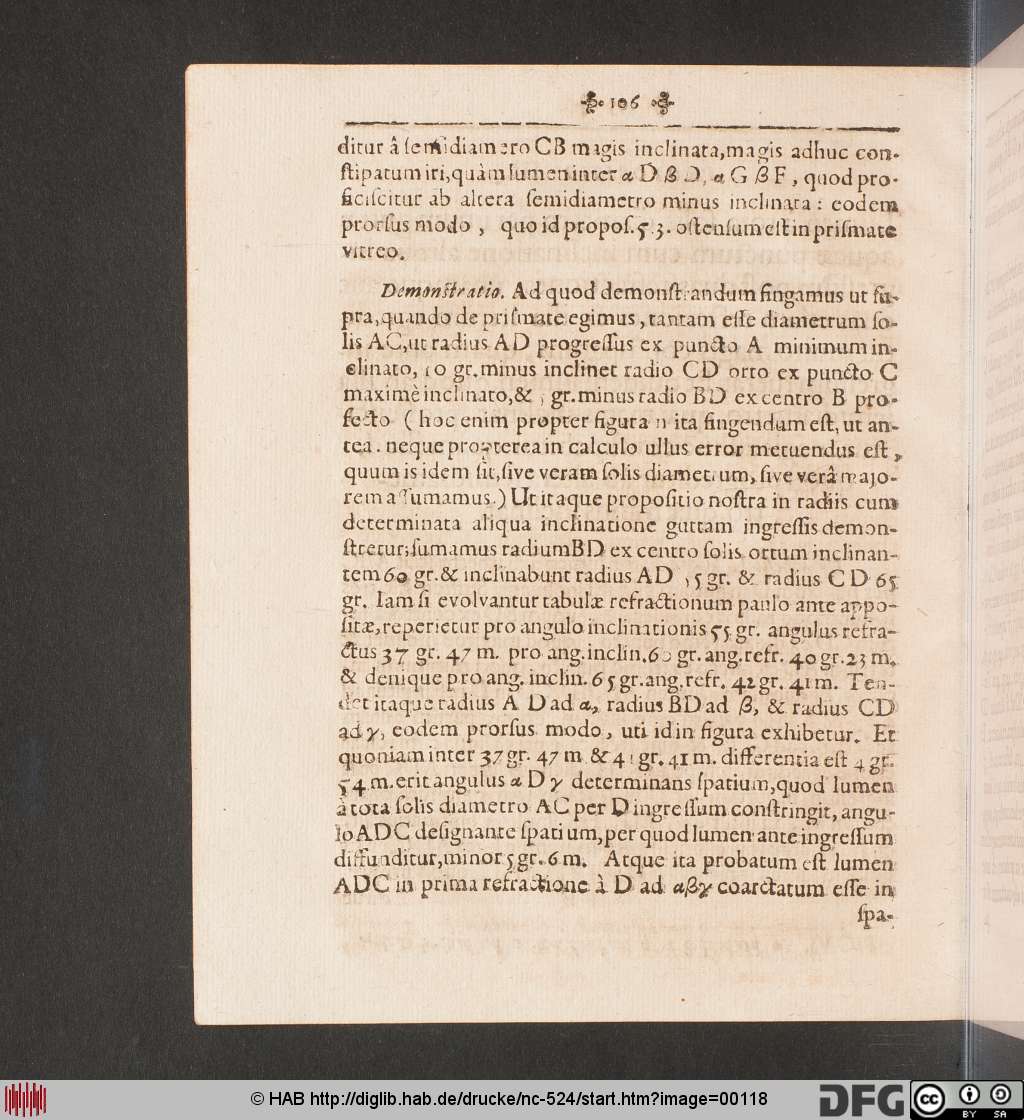 106
ditur â semidiametro CB magis inclinata, magis adhuc con-
stipatum iri, quàm lumen inter α D β D, α G β F, quod pro-
ficiscitur ab altera semidiametro minus inclinata: eodem
prorsus modo, quo id propos. 53. ostensum est in prismate
vitreo.
Demonstratio. Ad quod demonstrandum fingamus ut su-
pra, quando de prismate egimus, tantam esse diametrum so-
lis AC, ut radius AD progressus ex puncto A minimum in-
clinato, 10 gr. minus inclinet radio CD orto ex puncto C
maximè inclinato, & gr. minus radio BD ex centro B pro-
fecto (hoc enim propter figuram ita fingendum est, ut an-
tea. neque propterea in calculo ullus error metuendus est,
quum is idem sit, sive veram solis diametrum, sive verâ majo-
rem assumamus.) Ut itaque propositio nostra in radiis cum
determinata aliqua inclinatione guttam ingressis demon-
stretur; sumamus radium BD ex centro solis ortum inclinan-
tem 60 gr. & inclinabunt radius AD 55 gr. & radius CD 65
gr. Iam si evolvantur tabulæ refractionum paulo ante appo-
sitæ, reperietur pro angulo inclinationis 55 gr. angulus refra-
ctus 37 gr. 47 m. pro ang. inclin. 60 gr. ang. refr. 40 gr. 23 m.
& denique pro ang. inclin. 65 gr. ang. refr. 42 gr. 41 m. Ten-
det itaque radius A D ad α, radius BD ad β, & radius CD
ad γ, eodem prorsus modo, uti id in figura exhibetur. Et
quoniam inter 37 gr. 47 m & gr. 41 m. differentia est 4 gr.
54 m. erit angulus α D γ determinans spatium, quod lumen
à tota solis diametro AC per D ingressum constringit, angu-
lo ADC designante spatium, per quod lumen ante ingressum
diffunditur, minor 5 gr. 6 m. Atque ita probatum est lumen
ADC in prima refractione à D ad αβγ coarctatum esse in
spa-
© HAB http://diglib.hab.de/drucke/nc-524/start.htm?image=00118
DFG
cc BY SA